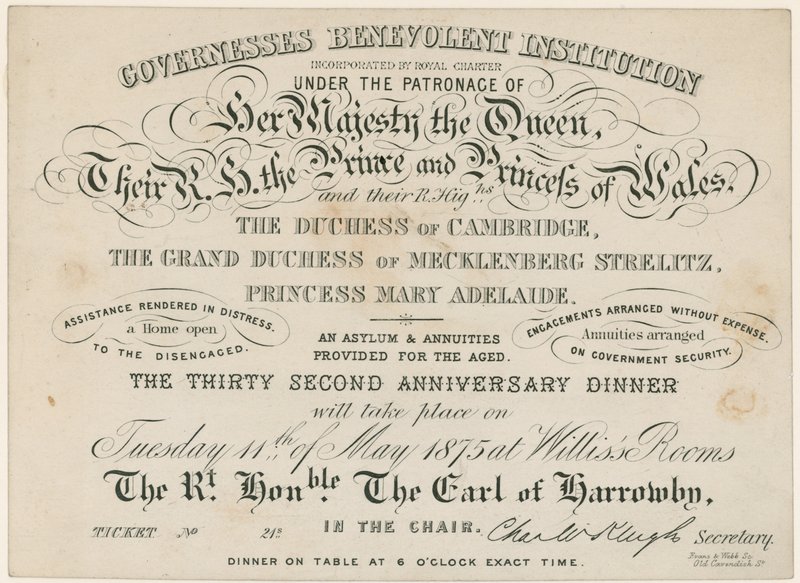 GOVERNESSES BENEVOLENT INSTITUTION
INCORPORATED BY ROYAL CHARTER
UNDER THE PATRONAGE OF
Her Majesty the Queen,
Their R. H. the Prince and Princess of Wales,
and their R. Highs
THE DUCHESS OF CAMBRIDGE,
THE GRAND DUCHESS OF MECKLENBERG STRELITZ,
PRINCESS MARY ADELAIDE.
ASSISTANCE RENDERED IN DISTRESS.
a Home open
TO THE DISENGAGED.
AN ASYLUM & ANNUITIES
PROVIDED FOR THE AGED.
ENGAGEMENTS ARRANGED WITHOUT EXPENSE.
Annuities arranged
ON GOVERNMENT SECURITY.
THE THIRTY SECOND ANNIVERSARY DINNER
will take place on
Tuesday 11th of May 1875 at Willis's Rooms
The Rt. Honble. The Earl of Harrowby,
IN THE CHAIR.
TICKET No 21s
Secretary.
Evans & Webb Sc.
Old Cavendish St
DINNER ON TABLE AT 6 O'CLOCK EXACT TIME.